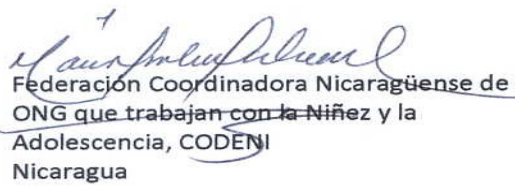 Federación Coordinadora Nicaragüense de
ONG que trabajan con la Niñez y la
Adolescencia, CODENI
Nicaragua